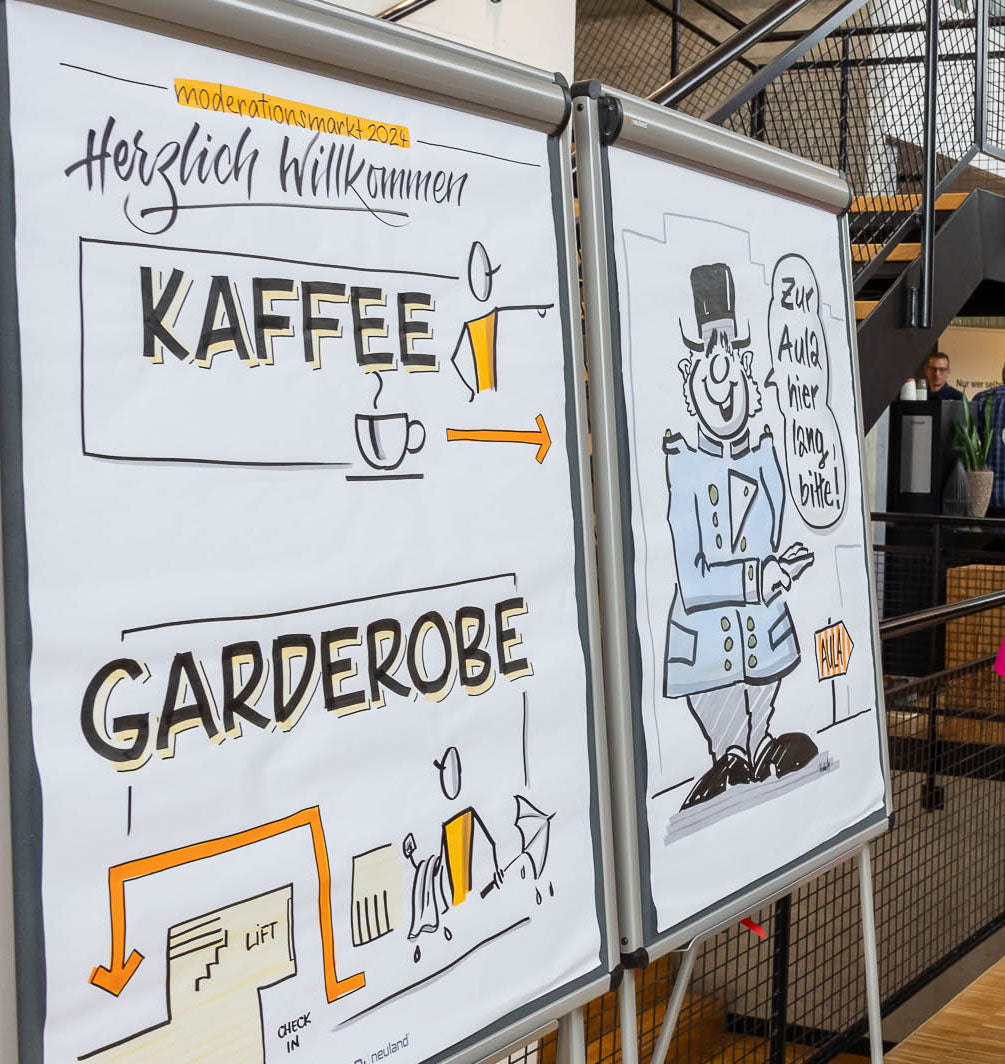 moderationsmarkt 2024
Herzlich Willkommen
KAFFEE
GARDEROBE
LiFT
CHECK
IN
neuland
neuland
Zur
Aula
hier
lang,
bitte!
AULA
Nur wer